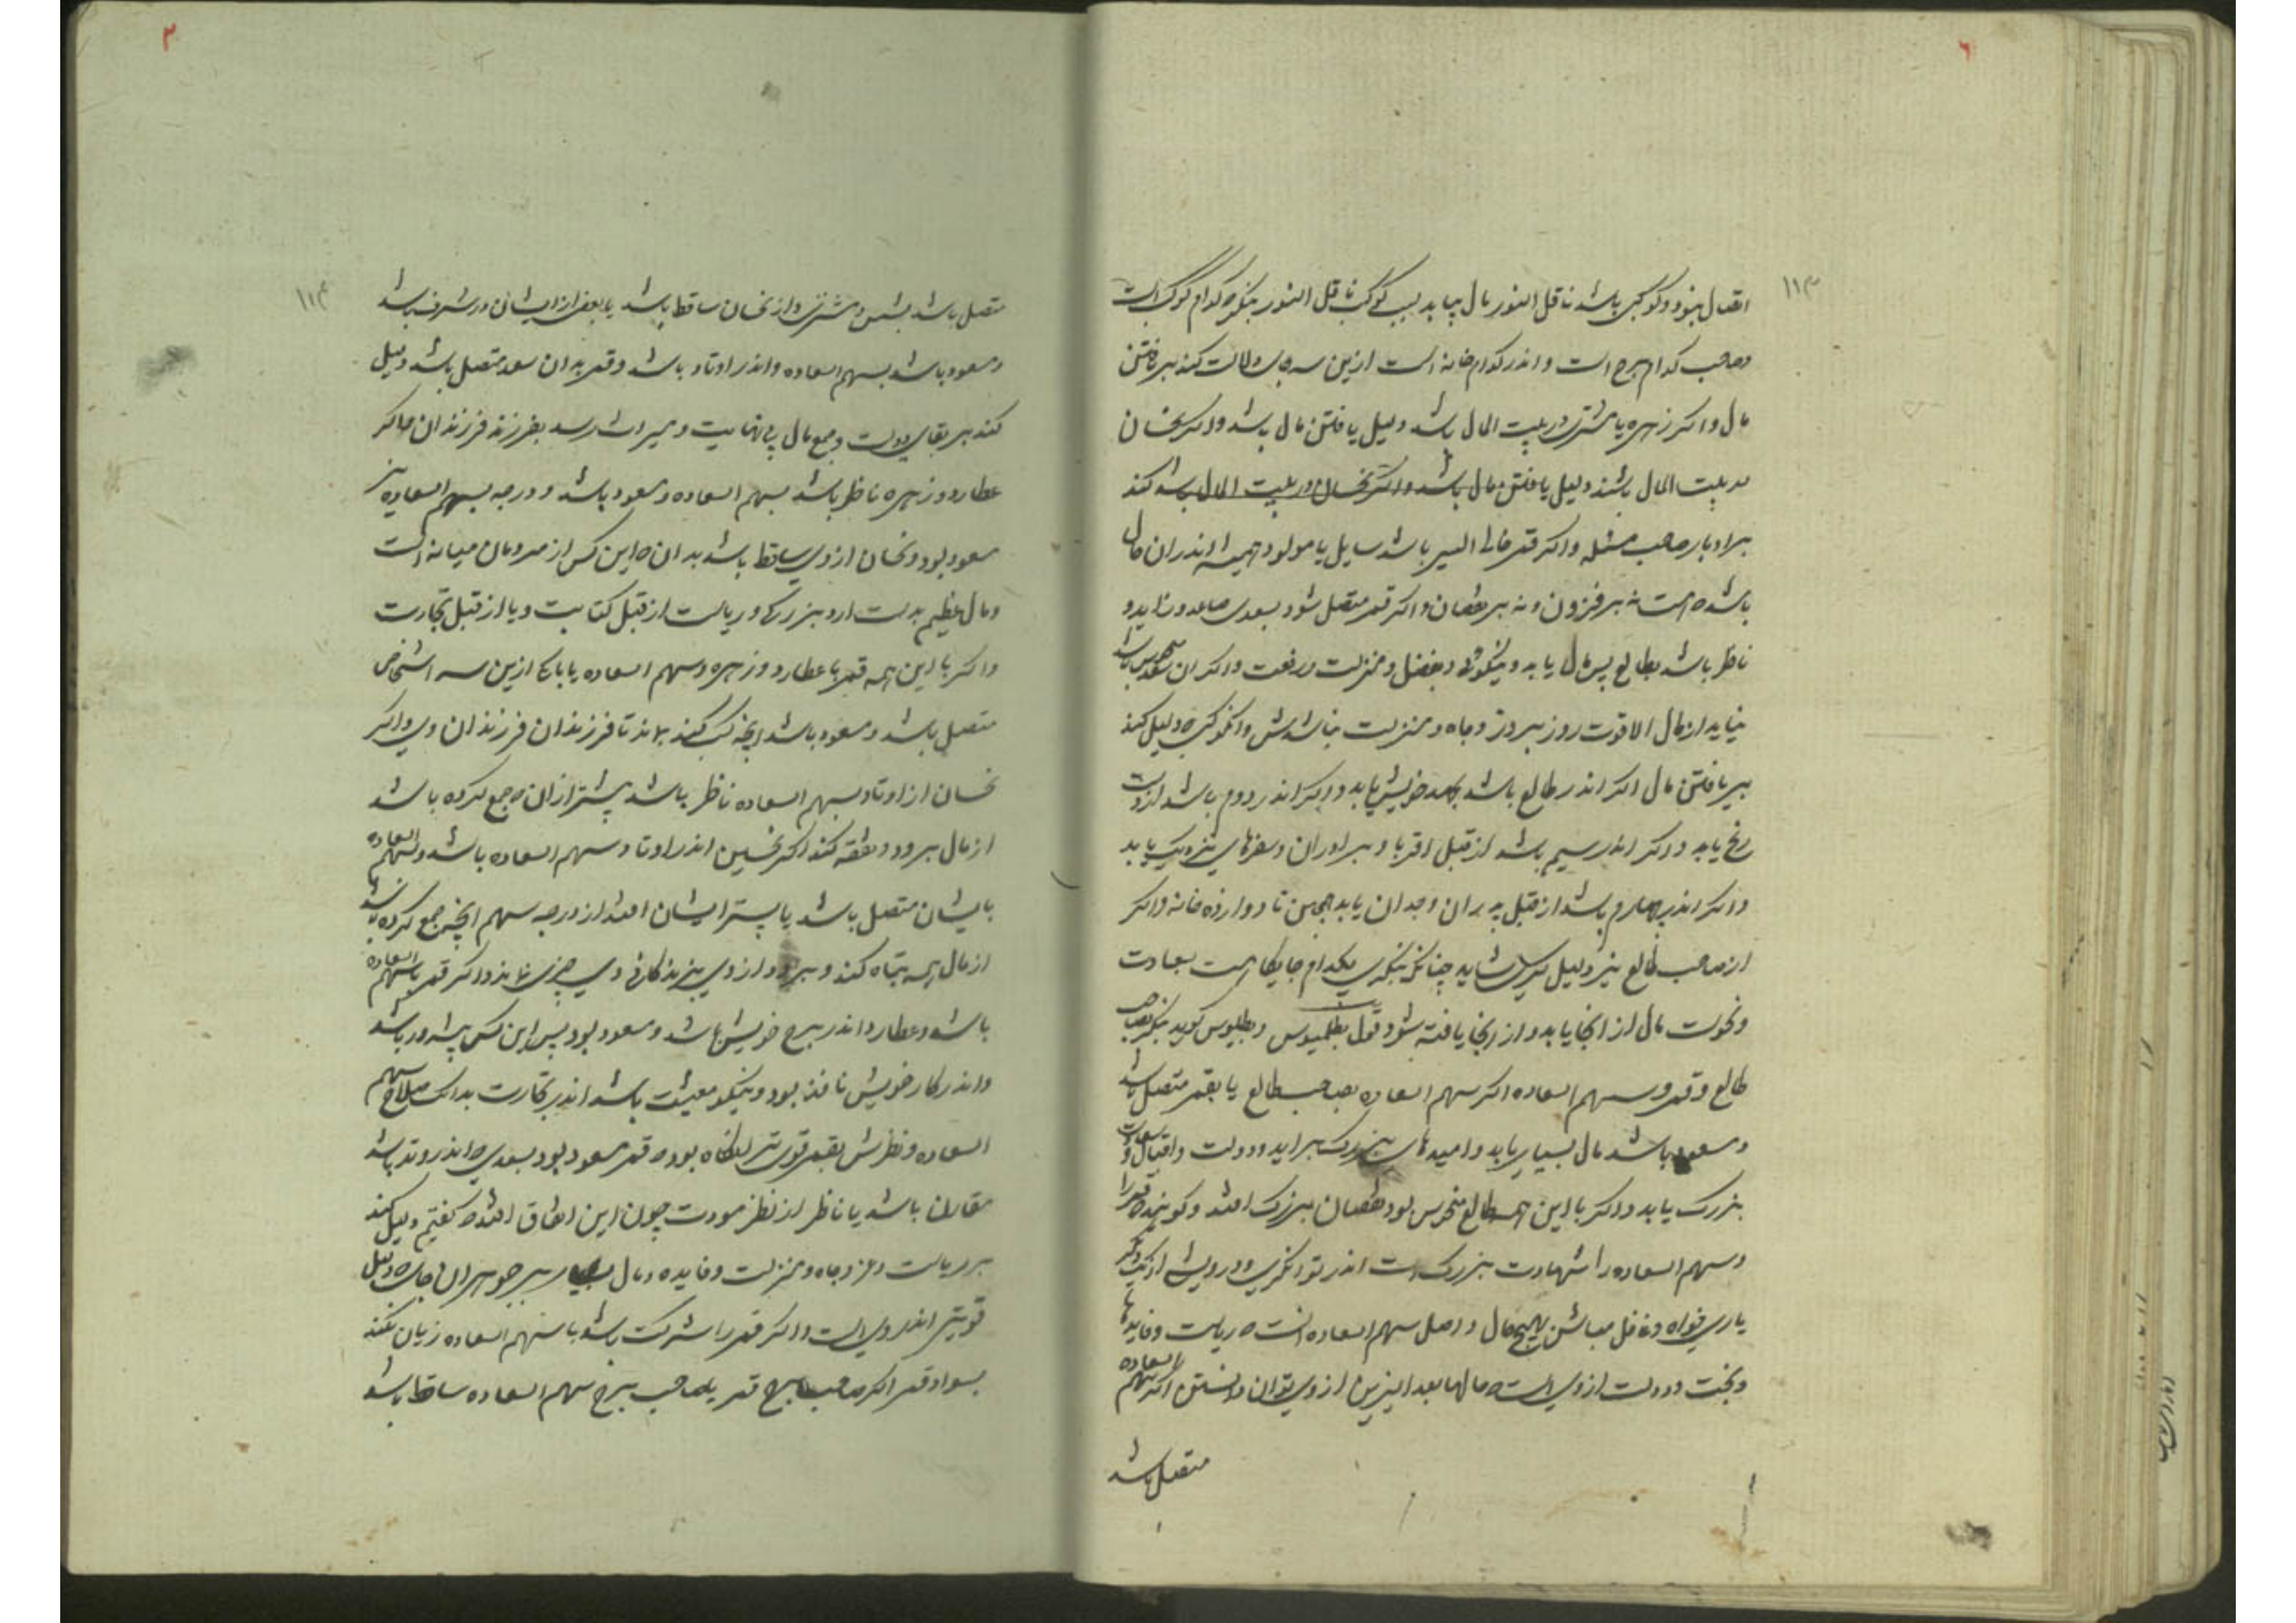 ۶
۱۱۳
اتصال بنود و کوکبی باشد ناقل النور مال بیابد بسبب کوکب ناقل النور بنگر که کدام کوکب است
و صاحب کدام برج است و اندر کدام خانه است ازین سه دلالت کند بر یافتن
مال و اگر زهره یا مشتری در بیت المال باشد دلیل یافتن مال باشد و اگر نحسان
در بیت المال باشند دلیل یافتن مال باشد و اگر نحسان در بیت المال باشد کند
بر ادبار صاحب مسئله و اگر قمر خالی السیر باشد سایل یا مولود همیشه اندران حال
باشد که هست نه بر فزون و نه بر نقصان و اگر قمر متصل شود بسعدی صاعد و زاید و
ناظر باشد بطالع پس مال یابد و نیکوئی و فضل و منزلت و رفعت و اگر آن سعد منحوس باشد
نیابد از مال الا قوت روز بروز و جاه و منزلت نباشدش و آن کوکب که دلیل کند
بر یافتن مال اگر اندر طالع باشد بجهد خویش یابد و اگر اندر دوم باشد از دست
رنج یابد و اگر اندر سیم باشد از قبل اقربا و برادران و سفرهای نزدیک یابد
و اگر اندر چهارم باشد از قبل پدران و جدان یابد همچنین تا دوازده خانه و اگر
از صاحب طالع نیز دلیل شاید چنانکه بنگری بکدام جایگاهست بسعادت
و نحوست مال از آنجا یابد و از آنجا یافته شود قول بطلمیوس و بطلمیوس گوید بنگر بصاحب
طالع و قمر و سهم السعاده اگر سهم السعاده بصاحب طالع یا بقمر متصل باشد
و مسعود باشد مال بسیار یابد و امیدهای بزرگ برآید و دولت و اقبال و سعادت
بزرگ یابد و اگر با این همه طالع منحوس بود نقصان بزرگ افتد و گویند که قمر را
و سهم السعاده را شهادت بزرگست اندر توانگری و درویشی از یکدیگر
یاری خواه و غافل مباش بهیچ حال و اصل سهم السعاده است که ریاست و فایدها
و بخت و دولت از وی است و مالها بعد از وی توان دانستن اگر سهم السعاده
متصل باشد
۳
۱۱۴
متصل باشد بشمس و مشتری و از نحسان ساقط باشد یا بعضی از ایشان در شرف باشد
و مسعود باشد بسهم السعاده و اندر اوتاد باشد و قمر بدان سعد متصل باشد دلیل
کند بر بقای دولت و جمع مال بی نهایت و میراث رسد بفرزند فرزندان و اگر
عطارد و زهره ناظر باشد بسهم السعاده و مسعود باشد و درجه سهم السعاده نیز
مسعود بود و نحسان از وی ساقط باشد بدان که این کس از مردمان میانه است
و مال عظیم بدست آرد و بزرگی و ریاست از قبل کتابت و یا از قبل تجارت
و اگر با این همه قمر با عطارد و زهره و سهم السعاده یا با یکی ازین سه اشخاص
متصل باشد و مسعود باشد آنچه کسب کند بماند تا فرزندان فرزندان وی و اگر
نحسان از اوتاد بسهم السعاده ناظر باشد بیشتر از آن که جمع کرده باشد
از مال برود و نفقه کند اگر نحسین اندر اوتاد سهم السعاده باشد و سهم السعاده
بایشان متصل باشد یا بیشتر ایشان افتد از درجه سهم آنچه جمع کرده باشد
از مال همه تباه کند و ببرود از وی بزندگانی وی چیزی نماند و اگر قمر با سهم السعاده
باشد و عطارد اندر برج خویش باشد و مسعود بود پس این کس پیشه ور باشد
و اندر کار خویش نافذ بود و نیکو معیشت باشد اندر تجارت بدانک صلاح سهم
السعاده و نظرش بقمر قوی تر آنگاه بود که قمر مسعود بود بسعدی که اندر وتد باشد
مقارن باشد یا ناظر از نظر مودت چون این اتفاق افتد که گفتیم دلیل کند
بر ریاست و عز و جاه و منزلت و فایده و مال دلیل
قویتری اندر وی است و اگر قمر را شرکت باشد با سهم السعاده زیان نکند
بسواد قمر اگر صاحب برج قمر یا صاحب برج سهم السعاده ساقط باشد